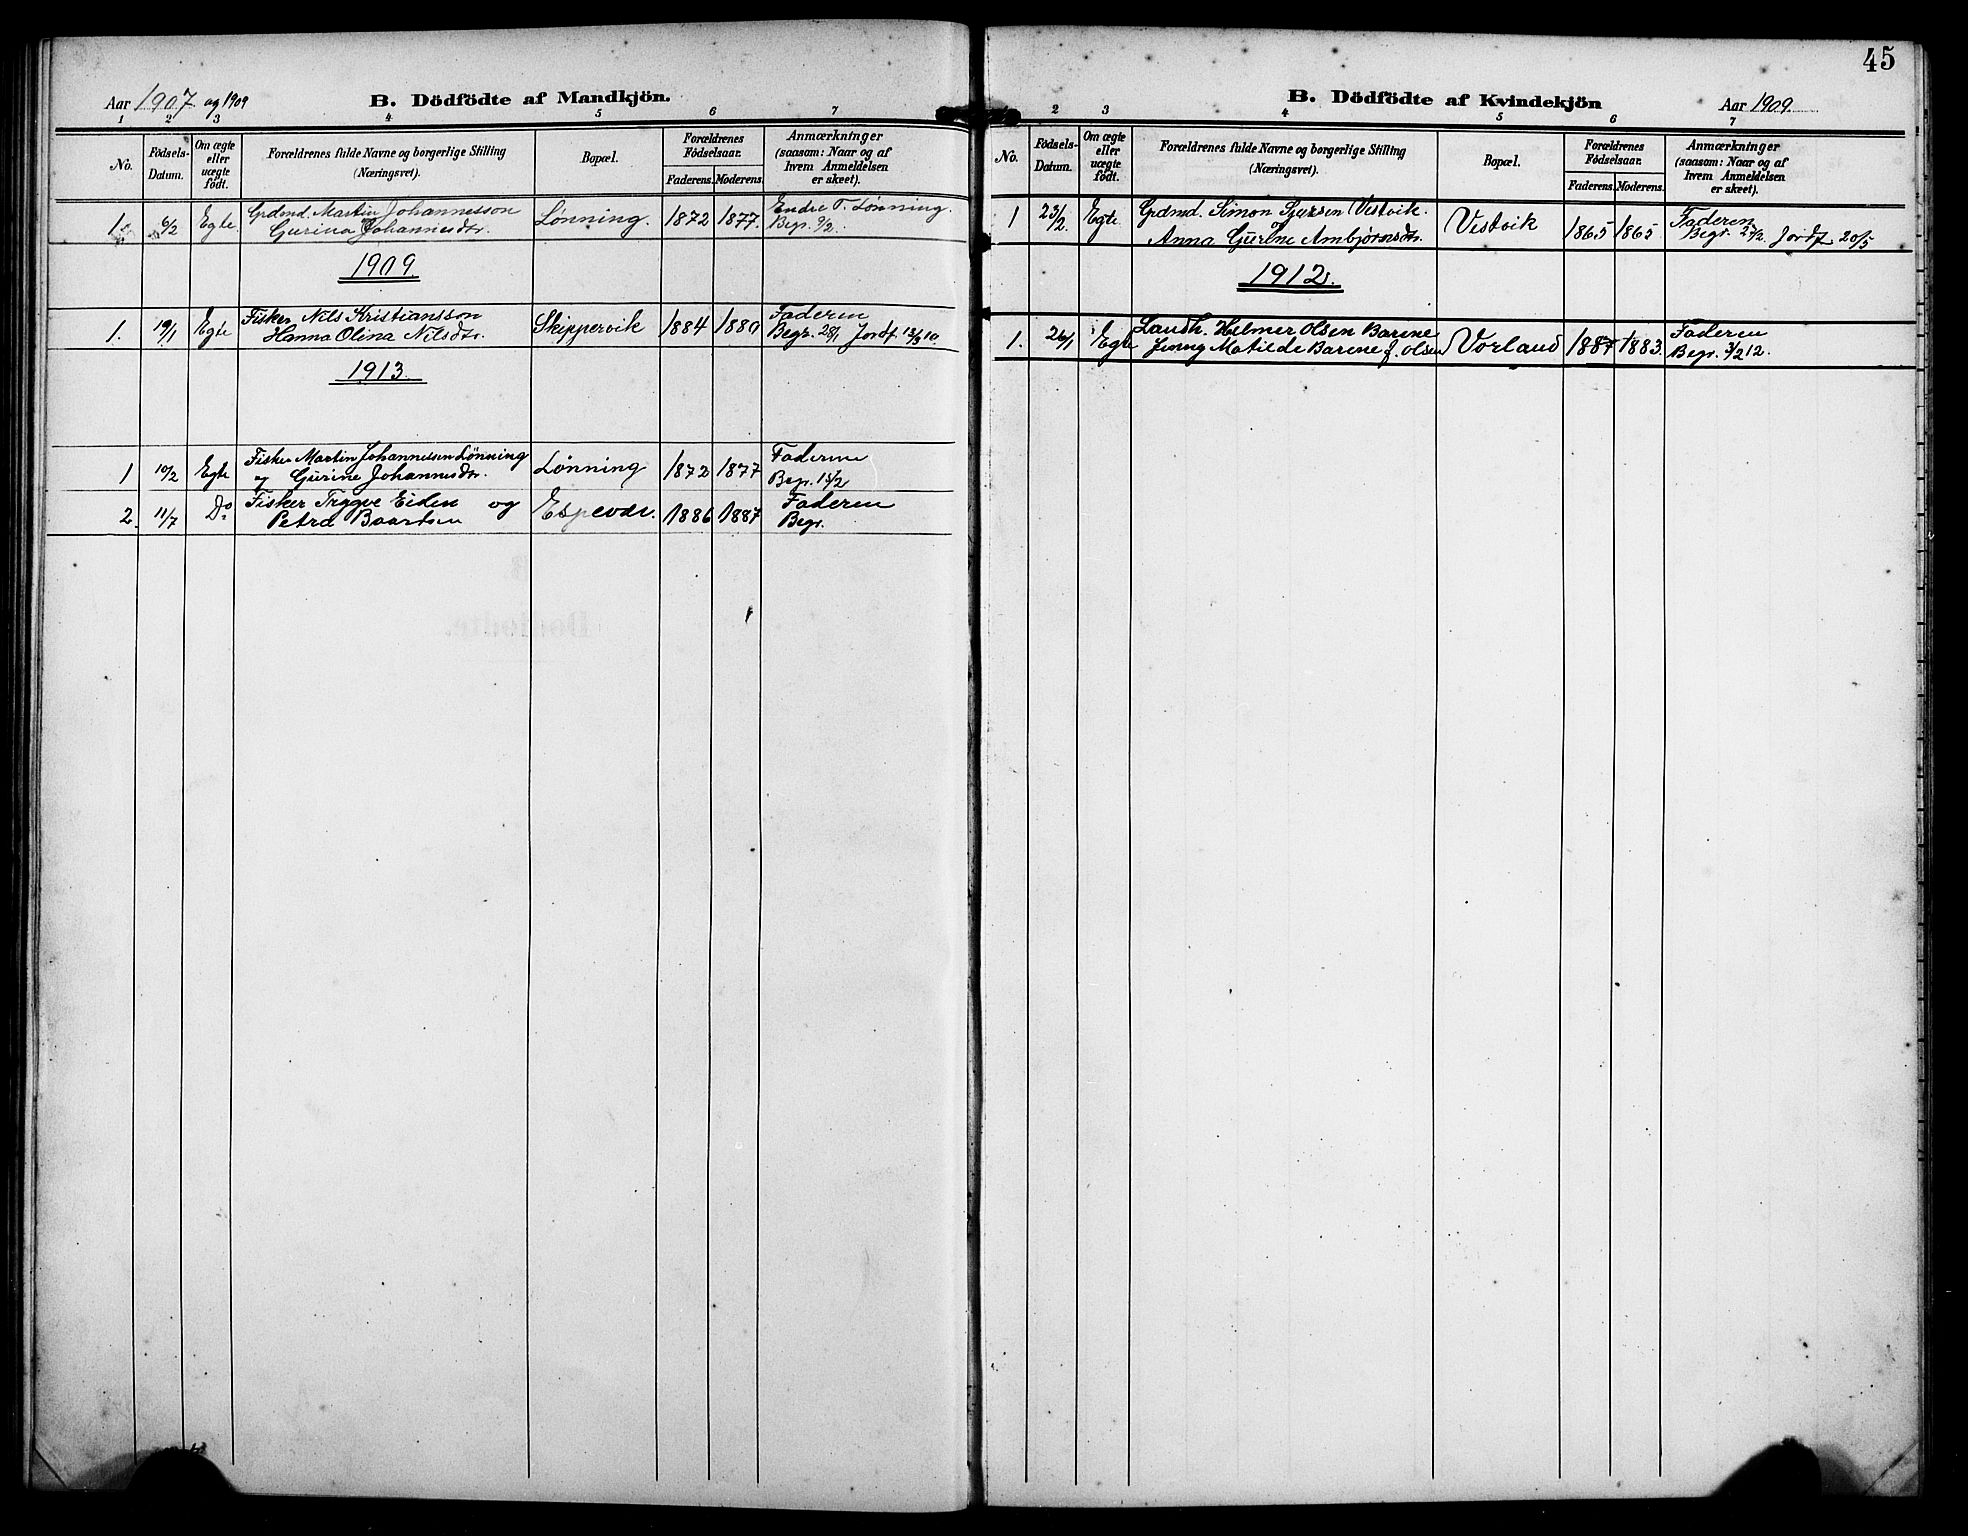 45
Aar 1907 og 1909
B. Dödfödte af Mandkjön.
1 2 3 4 5 6 7
No.
Födsels-Datum.
Om ægte eller uægte födt.
Forældrenes fulde Navne og borgerlige Stilling (Næringsvei).
Bopæl.
Forældrenes Födselsaar.
Faderens. Moderens.
Anmærkninger (saasom: Naar og af hvem Anmeldelsen er skeet).
1. 6/2 Egte Grdmd. Martin Johannesson Lønning. 1872 1877. Endre T. Lønning.
Gurina Johannesdtr. Begr. 9/2.
1909
1. 19/1 Egte Fisker Nils Kristiansson Skippervik 1884 1880 Faderen
Hanna Olina Nilsdtr. Begr. 28/1 Jordf. 13/3 10.
1913
1 10/2 Egte Fisker Martin Johannessen Lønning Lønning 1872 1877 Faderen
og Gurine Johannesdtr. Begr. 15/2
2. 11/7 Do Fisker Trygve Eiden og Espevær. 1886 1887 Faderen
Petra Baartsen Begr.
B. Dödfödte af Kvindekjön
Aar 1909.
2 3 4 5 6 7
No.
Födsels-Datum.
Om ægte eller uægte födt.
Forældrenes fulde Navne og borgerlige Stilling (Næringsvei).
Bopæl.
Forældrenes Födselsaar.
Faderens. Moderens.
Anmærkninger (saasom: Naar og af hvem Anmeldelsen er skeet).
1 23/2. Egte. Grdmd. Simon Sjursen Vestvik. Vestvik 1865 1865 Faderen
og
Anna Gurine Ambjørnsdtr. Begr. 27/2. Jordf. 20/5
1912.
1. 26/1 Egte Landh. Helmer Olsen Barene Vorland 1887 1883. Faderen
Jenny Matilde Barene f. Olsen Begr. 3/2 12.